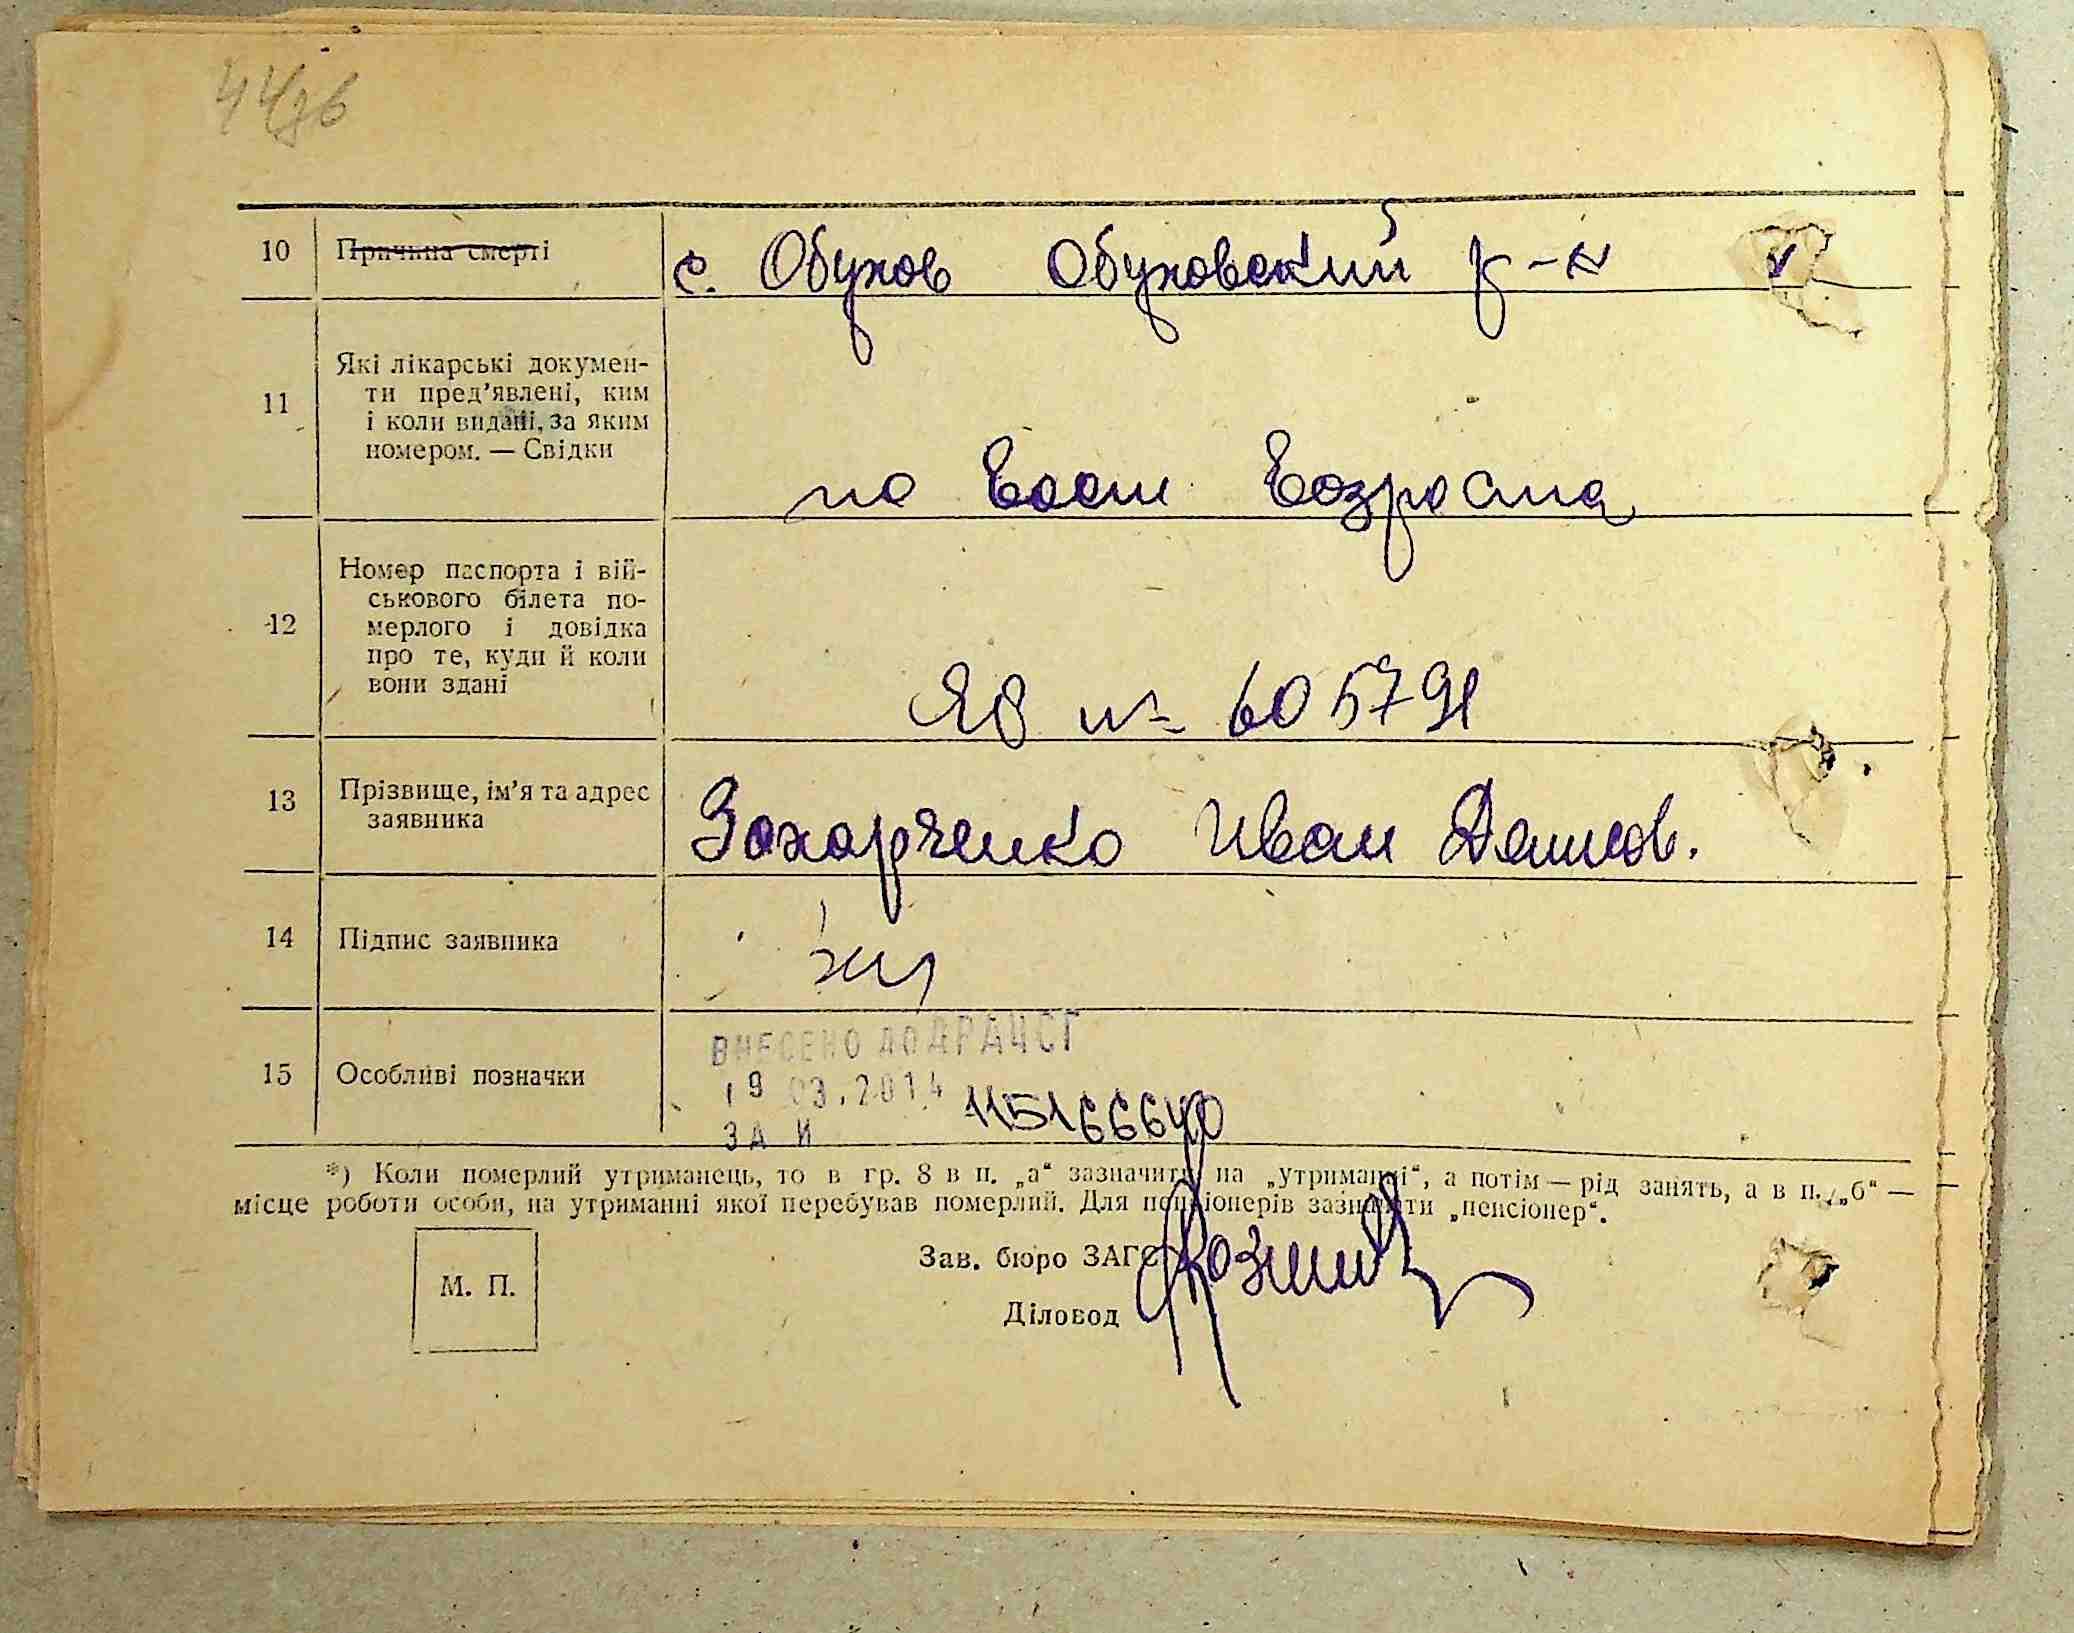 44зв
10 Причина смерті с. Обухов Обуховский р-н
11 Які лікарські докумен-
ти пред’явлені, ким
і коли видані, за яким
номером. — Свідки
по возраста
12 Номер паспорта і вій-
ськового білета по-
мерлого і довідка
про те, куди й коли
вони здані
№ 605791
13 Прізвище, ім’я та адрес
заявника
Захарченко Иван Денисов.
14 Підпис заявника
15 Особливі позначки
ВНЕСЕНО ДО ДРАЦСГ
19 03.2014
ЗА № 115166640
*) Коли померлий утриманець, то в гр. 8 в п. „а“ зазначити на „утриманні“, а потім — рід занять, а в п. „б“ —
місце роботи особи, на утриманні якої перебував померлий. Для пенсіонерів зазначити „пенсіонер“.
М. П.
Зав. бюро ЗАГС
Діловод